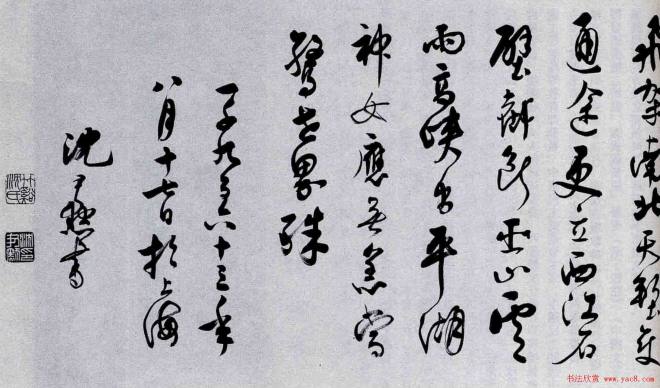 飛架南北天塹变
通途更立西江石
壁截断巫山雲
雨高峡出平湖
神女應無恙當
驚世界殊
一千九百六十三年
八月十七日於上海
沈尹默書
竹谿沈氏
書法欣赏 www.yac8.com